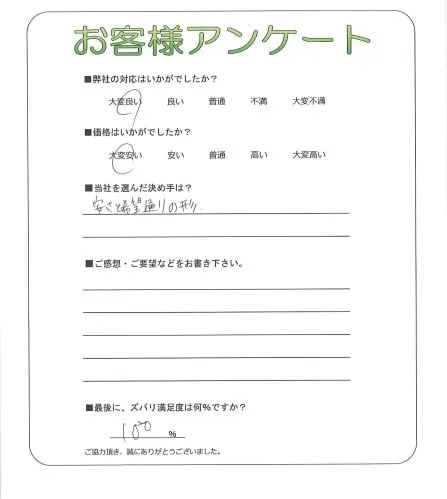 お客様アンケート
■弊社の対応はいかがでしたか？
大変良い 良い 普通 不満 大変不満
■価格はいかがでしたか？
大変安い 安い 普通 高い 大変高い
■当社を選んだ決め手は？
安さと希望通りの形.
■ご感想・ご要望などをお書き下さい。
■最後に、ズバリ満足度は何%ですか？
100 %
ご協力頂き、誠にありがとうございました。